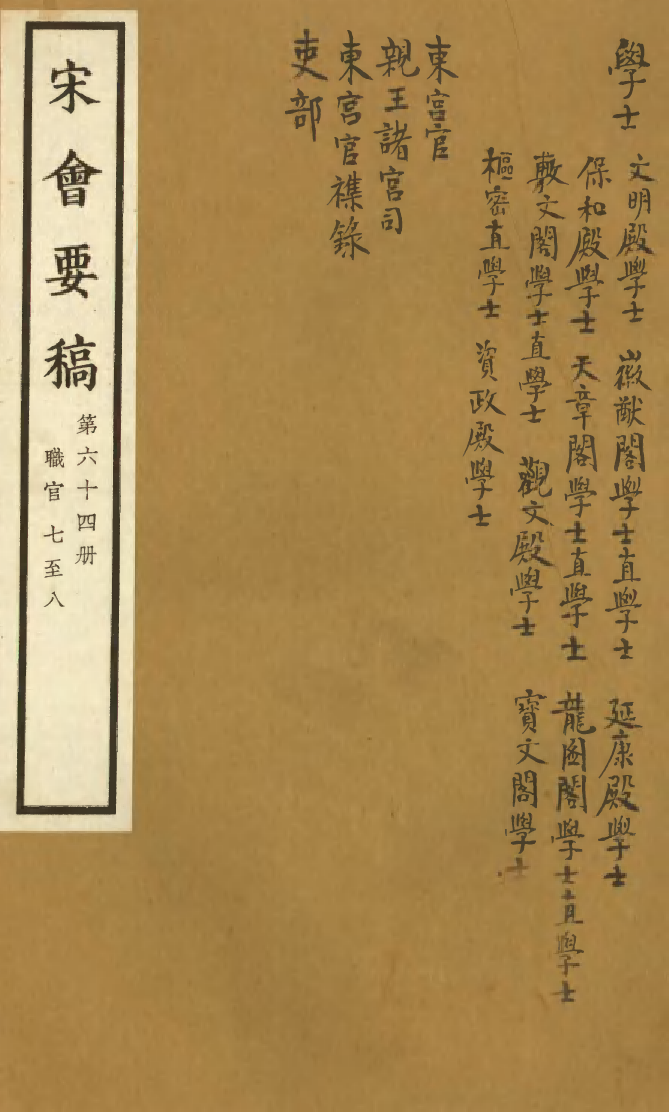 學士
文明殿學士　徽猷閣學士直學士　延康殿學士
保和殿學士　天章閣學士直學士　龍圖閣學士直學士
敷文閣學士直學士　觀文殿學士　寶文閣學士
樞密直學士　資政殿學士
東宮官
親王諸宮司
東宮官襍錄
吏部
宋會要稿
第六十四册
職官七至八